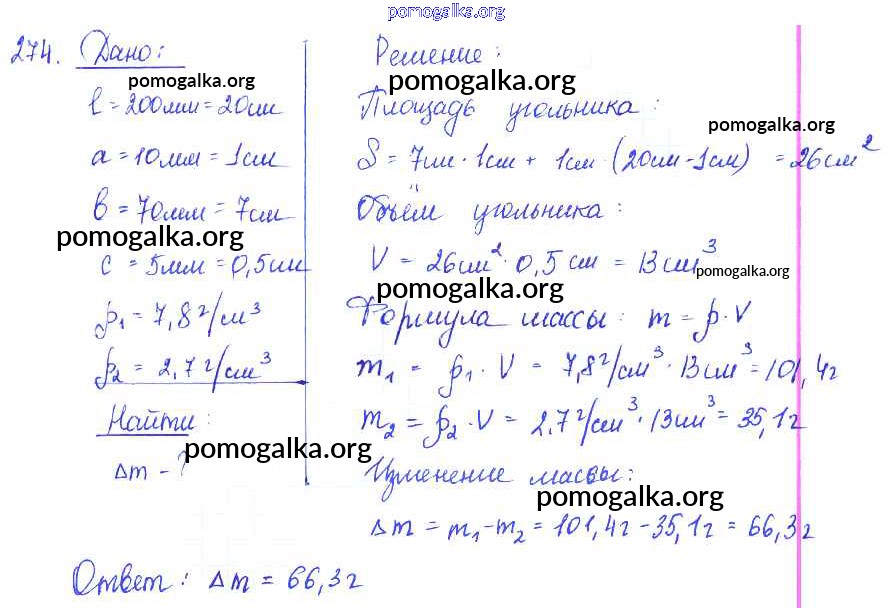 pomogalka.org
274. Дано:
pomogalka.org
l = 200мм = 20см
a = 10мм = 1см
b = 70мм = 7см
pomogalka.org
c = 5мм = 0,5см
ρ₁ = 7,8 г/см³
ρ₂ = 2,7 г/см³
Найти:
pomogalka.org
Δm - ?
Решение:
pomogalka.org
Площадь угольника:
pomogalka.org
S = 7см · 1см + 1см · (20см - 1см) = 26см²
Объём угольника:
V = 26см² · 0,5 см = 13см³
pomogalka.org
pomogalka.org
Формула массы: m = ρ·V
m₁ = ρ₁ · V = 7,8г/см³ · 13см³ = 101,4г
m₂ = ρ₂ · V = 2,7г/см³ · 13см³ = 35,1г
Изменение массы:
pomogalka.org
Δm = m₁ - m₂ = 101,4г - 35,1г = 66,3г
Ответ: Δm = 66,3г